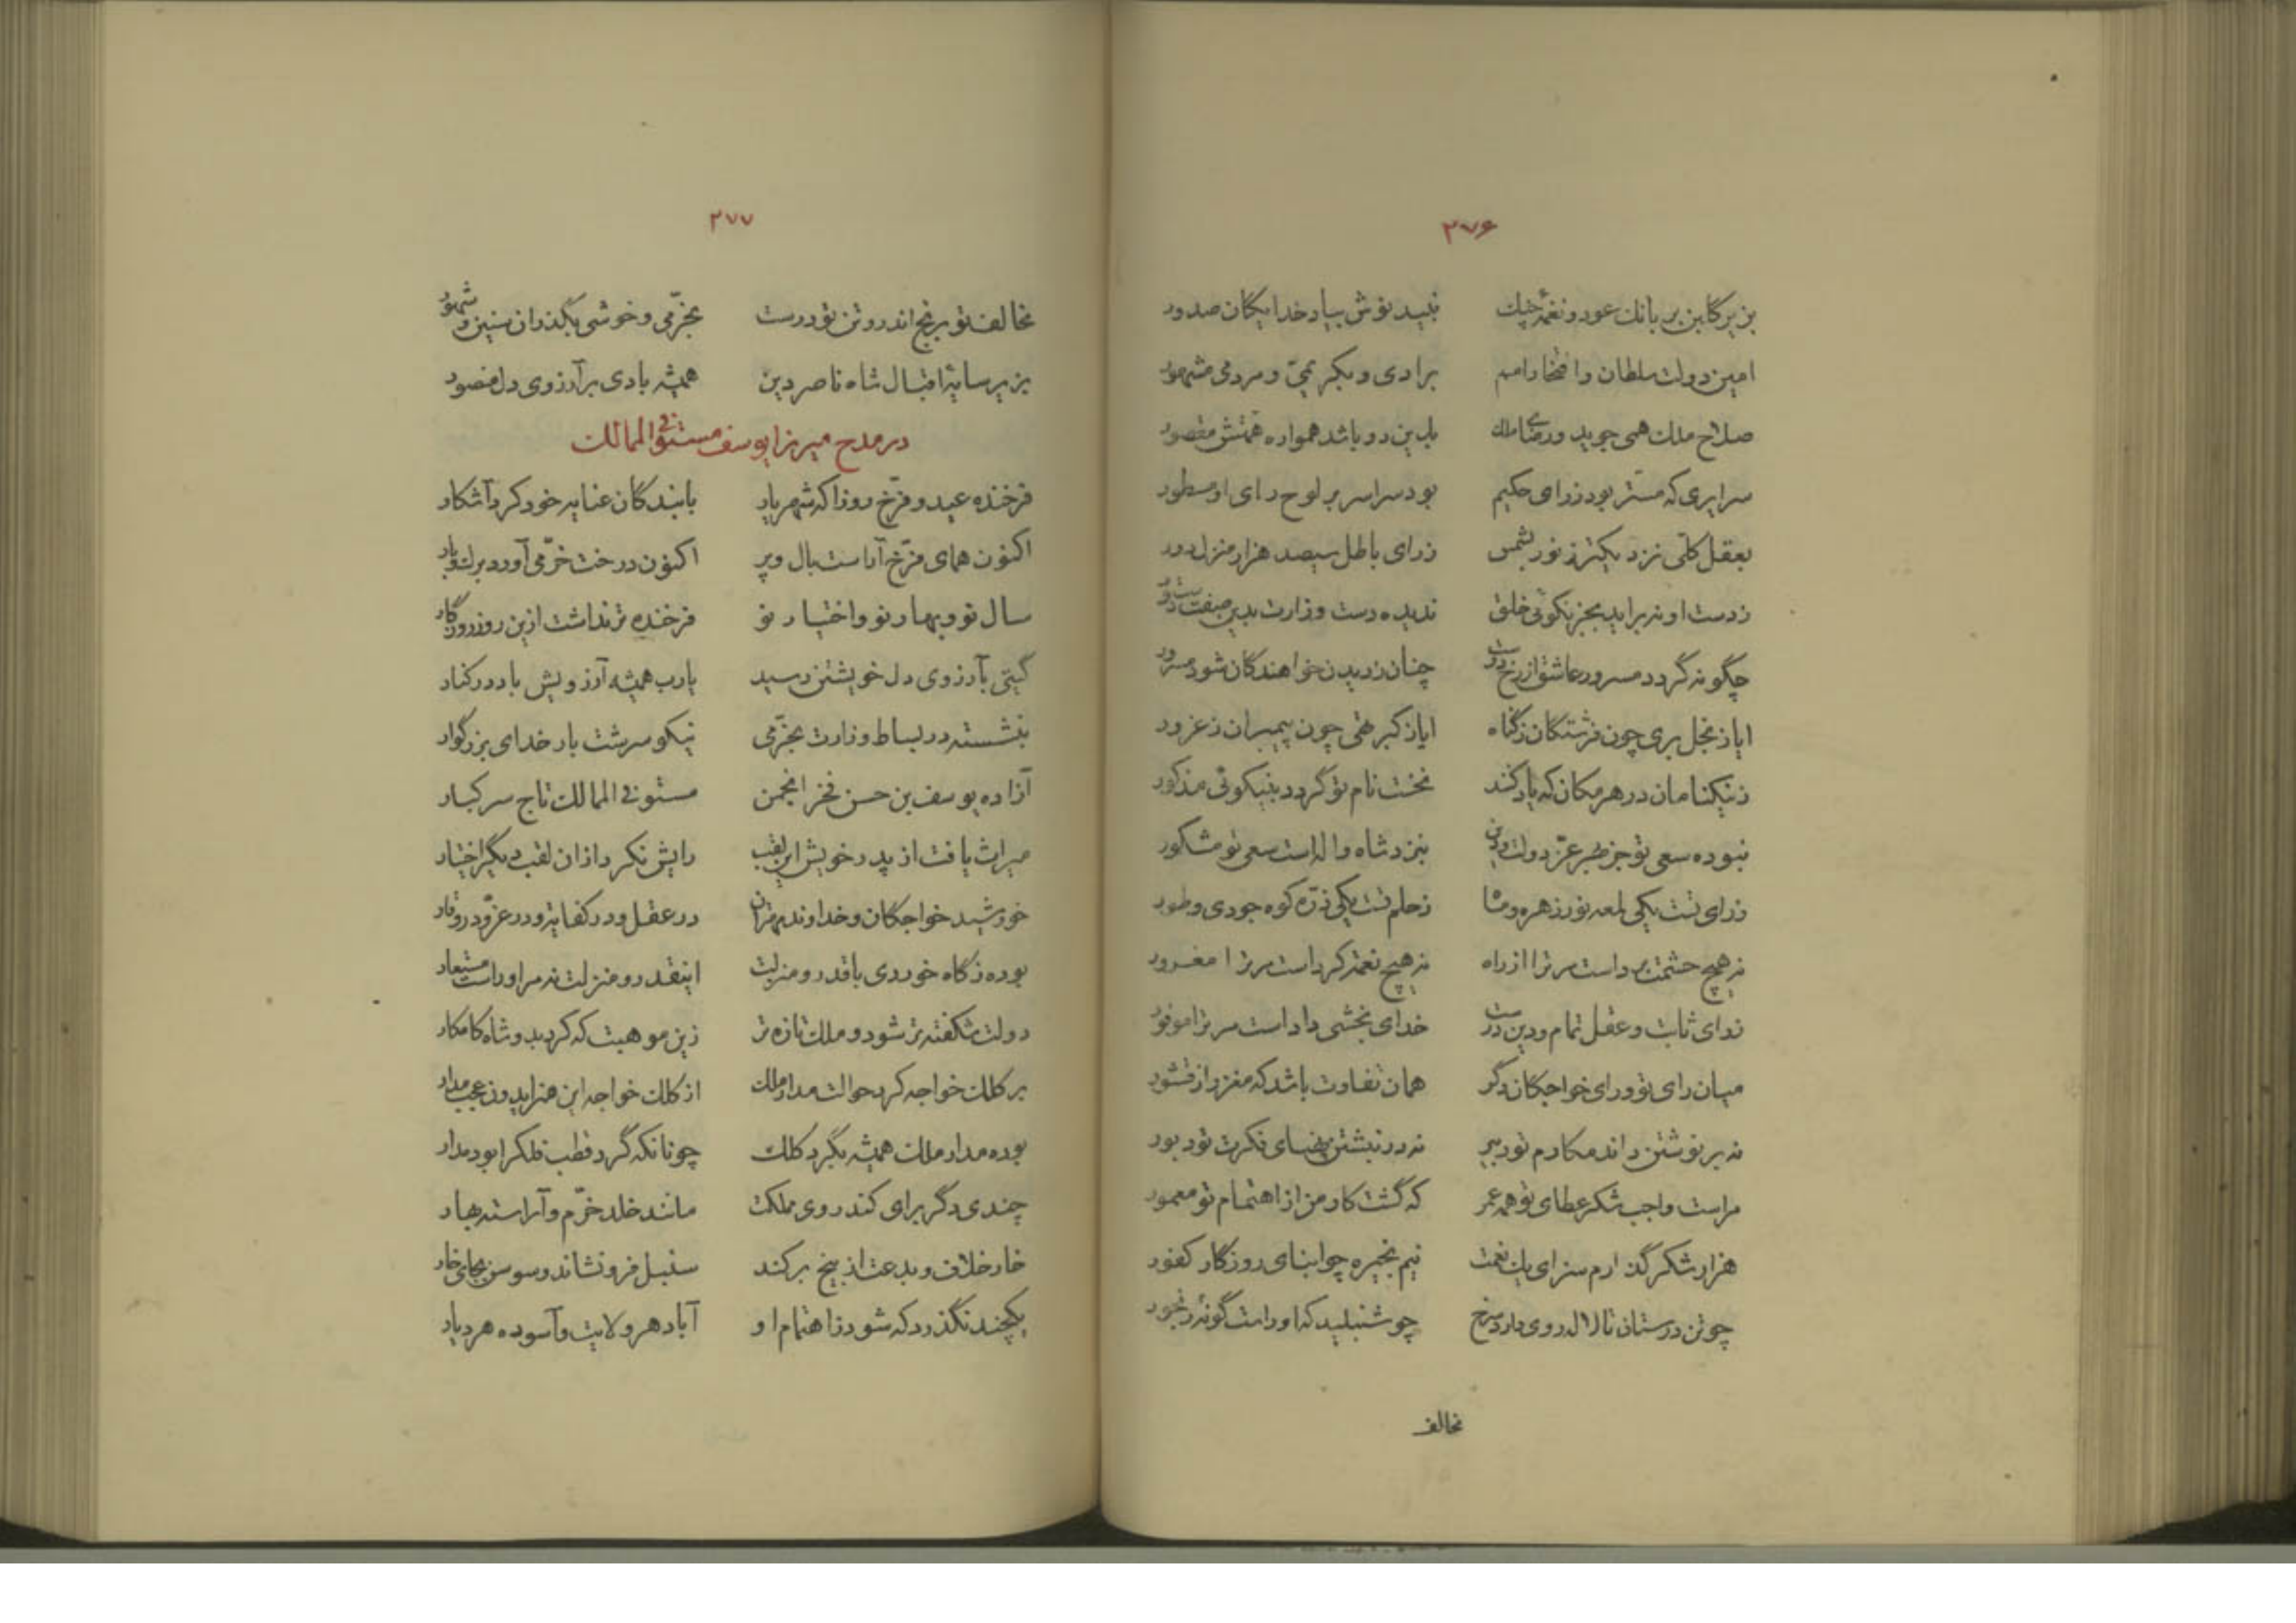 ۲۷۶
بزیر گلبن بر بانك عود و نغمهٔ چنك نبید نوش بیاد خدایکان صدور
امین دولت سلطان و افتخار امم برادی و بکریمی و مردمی مشهور
صلاح ملك همی جوید و رضای ملك بدین دو باشد همواره همتش مقصور
سرایری که مستر بود ز رای حکیم بود سراسر بر لوح رای او مسطور
بعقل کلّی نزدیکتر ز نور بشمس ز رای باطل سیصد هزار منزل دور
ز دست او نه براید بجز نکوئی خلق ندیده دست وزارت بدین صفت دستور
چگونه گردد مسرور عاشق از رخ دوست چنان ز دیدن خواهندگان شود مسرور
ایا ز بخل بری چون فرشتگان ز گناه ایا ز کبر تهی چون پیمبران ز غرور
ز نیکنامان در هر مکان که یاد کنند نخست نام تو گردد بنیکوئی مذکور
نبوده سعی تو جز بهر عزّ دولت و دین بنزد شاه و اله است سعی تو مشکور
ز رای تست یکی لمعه نور زهره و ماه ز حلم تست یکی ذرّه کوه جودی و طور
نه هیچ حشمت برداست مر ترا از راه نه هیچ نعمت کرداست مر ترا مغرور
ز رای ثابت و عقل تمام و دین درست خدای بخشی داداست مر ترا موفور
میان رای تو و رای خواجکان دگر همان تفاوت باشد که مغز را ز قشور
نه بر نوشتن داند مکارم تو دبیر نه در نبشتن بیضای فکرت تو دبور
مراست واجب شکر عطای تو همه عمر که گشت کار من از اهتمام تو معمور
هزار شکر گذارم سزای یك نعمت نیم بخیره چو ابنای روزگار کفور
چو تن درستان تا لاله روی دارد سرخ چو شنبلید که او راست گونهٔ رنجور
مخالف
۲۷۷
مخالف تو برنج اندر و تن تو درست بخرّمی و خوشی بگذران سنین و شهور
بزیر سایهٔ اقبال شاه ناصر دین همیشه بادی بر آرزوی دل منصور
در مدح میرزا یوسف مستوفی الممالك
فرخنده عید و فرّخ روزا که شهریار با بندگان عنایه خود کرد آشکار
اکنون همای فرّخ آراست بال و پر اکنون درخت خرّمی آورد برك و بار
سال نو و بهار نو و اختیار نو فرخنده‌تر نداشت ازین روز روزگار
گیتی بآرزوی دل خویشتن رسید یارب همیشه آرزویش باد در کنار
بنشسته در بساط وزارت بخرّمی نیکو سرشت بار خدای بزرگوار
آزاده یوسف بن حسن فخر انجمن مستوفی الممالك تاج سر کبار
میراث یافت از پدر خویش این لقب رایش نکرد از آن لقب دیگر اختیار
خورشید خواجکان و خداوند مهتران در عقل و در کفایه و در عزّ و در وقار
بوده ز گاه خوردی با قدر و منزلت اینقدر و منزلت نه مر او راست مستعار
دولت شکفته‌تر شود و ملك تازه‌تر زین موهبت که کرد بدو شاه کامکار
بر کلك خواجه کرد حوالت مدار ملك از کلك خواجه این هنر آید و زن عجب مدار
بوده مدار ملك همیشه بگرد کلك چونانکه گرد قطب فلك را بود مدار
چندی دگر برای کند روی مملکت مانند خلد خرّم و آراسته بهار
خار خلاف و بدعت از بیخ برکند سنبل فرو نشاند و سوسن بجای خار
یکچند نگذرد که شود ز اهتمام او آباد هر ولایت و آسوده هر دیار